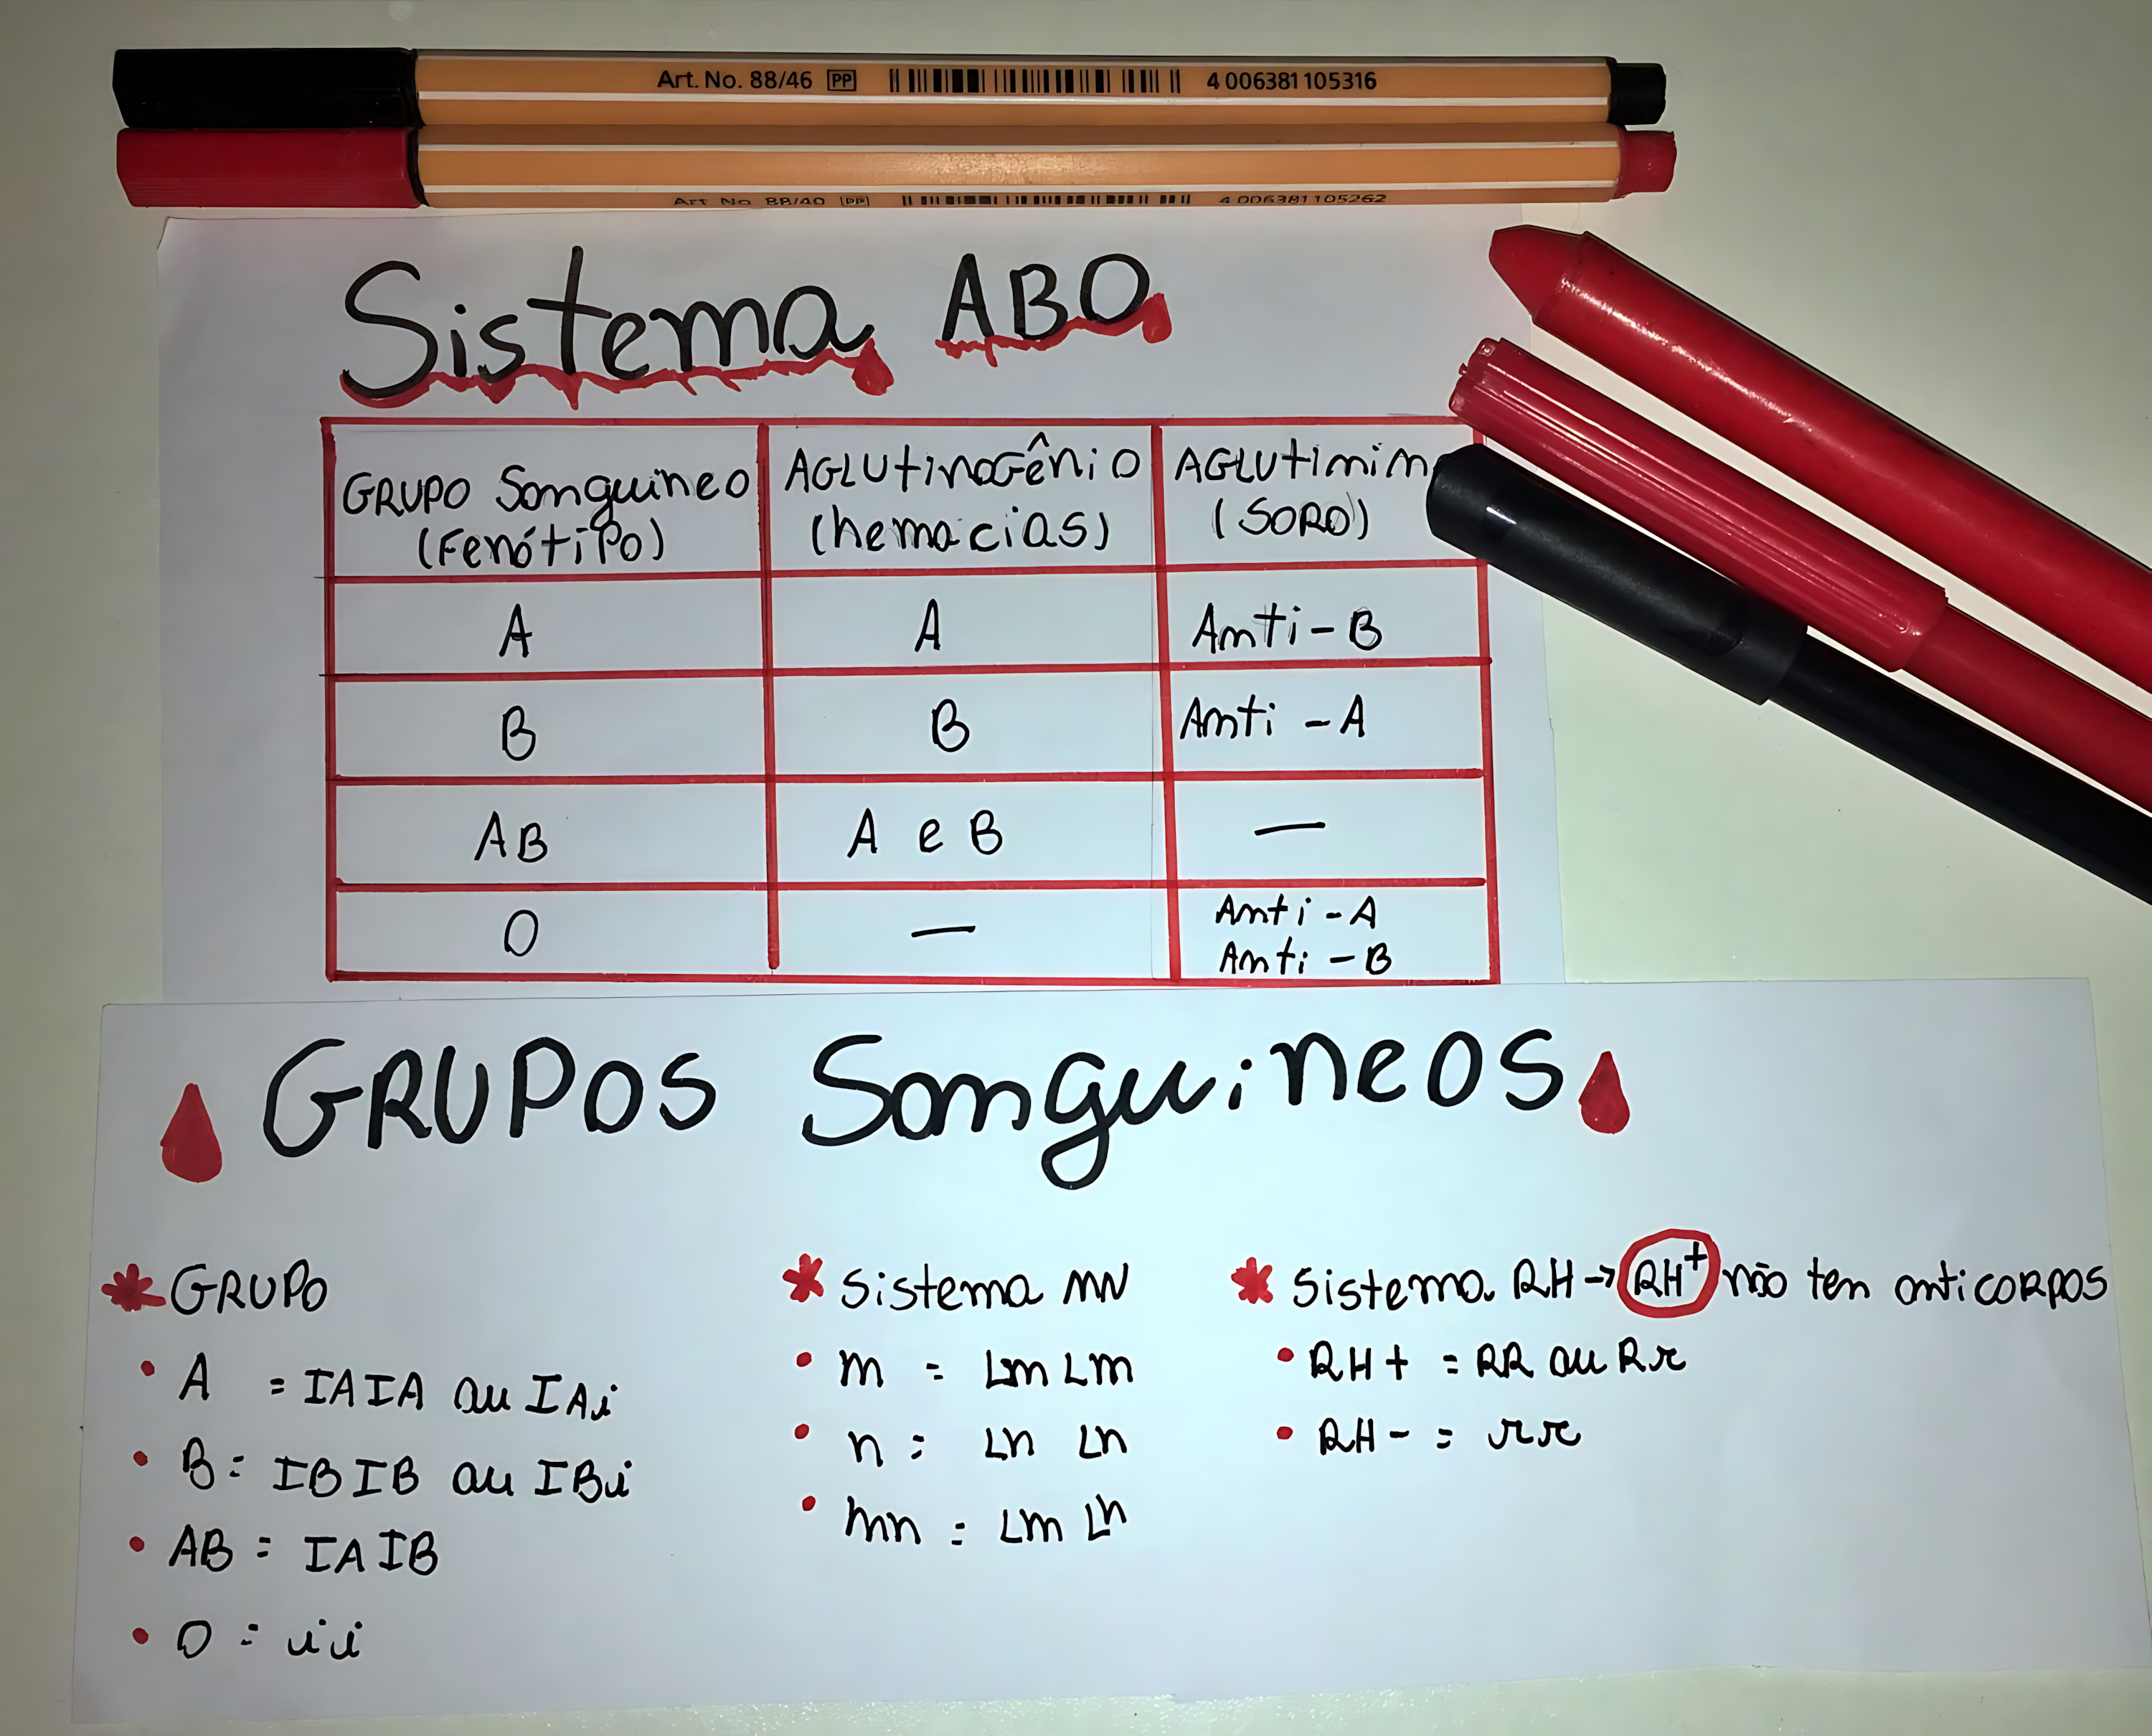 Art. No. 88/46 PP 4 006381 105316
Art. No. 88/40 PP 4 006381 105262
Sistema ABO
GRUPO Sanguineo (Fenótipo)
AGLUtinoGênio (hemacias)
AGLUtinin (SORO)
A A Anti-B
B B Anti-A
AB A e B —
O — Anti-A
Anti-B
GRUPOS Sanguineos
* GRUPO
• A = IAIA ou IAi
• B = IBIB ou IBi
• AB = IAIB
• O = ii
* Sistema MN
• m = Lm Lm
• n = Ln Ln
• mn = Lm Ln
* Sistema RH → RH+ não tem anticorpos
• RH+ = RR ou Rr
• RH- = rr